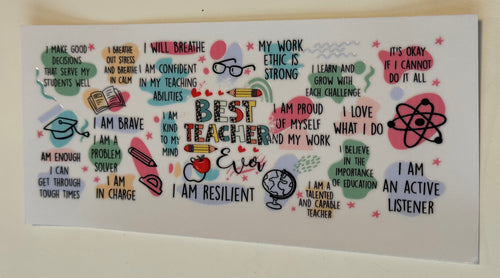 I MAKE GOOD
DECISIONS
THAT SERVE MY
STUDENTS WELL
I BREATHE
OUT STRESS
AND BREATHE
IN CALM
I WILL BREATHE
I AM CONFIDENT
IN MY TEACHING
ABILITIES
MY WORK
ETHIC IS
STRONG
I LEARN AND
GROW WITH
EACH CHALLENGE
IT'S OKAY
IF I CANNOT
DO IT ALL
I AM BRAVE
I AM
KIND TO
MY
MIND
BEST
TEACHER
Ever
I AM PROUD
OF MYSELF
AND MY WORK
I LOVE
WHAT I DO
AM ENOUGH
I CAN
GET THROUGH
TOUGH TIMES
I AM A
PROBLEM
SOLVER
I AM
IN CHARGE
I AM RESILIENT
I BELIEVE
IN THE
IMPORTANCE
OF EDUCATION
I AM A
TALENTED
AND CAPABLE
TEACHER
I AM
AN ACTIVE
LISTENER